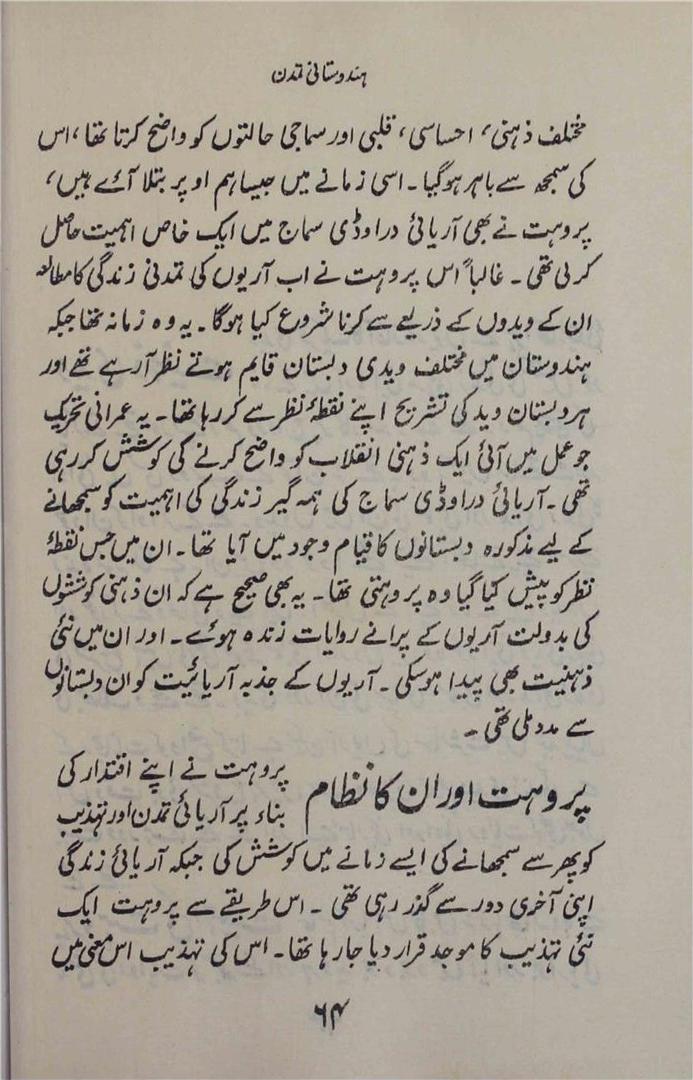 ہندوستانی تمدن
مختلف ذہنی، احساسی، قلبی اور سماجی حالتوں کو واضح کرتا تھا، اس
کی سمجھ سے باہر ہوگیا۔ اسی زمانے میں جیسا ہم اوپر بتلا آئے ہیں،
پروہت نے بھی آریائی دراوڈی سماج میں ایک خاص اہمیت حاصل
کرلی تھی۔ غالباً اس پروہت نے اب آریوں کی تمدنی زندگی کا مطالعہ
ان کے ویدوں کے ذریعے سے کرنا شروع کیا ہوگا۔ یہ وہ زمانہ تھا جبکہ
ہندوستان میں مختلف ویدی دبستان قایم ہوتے نظر آرہے تھے اور
ہر دبستان وید کی تشریح اپنے نقطۂ نظر سے کر رہا تھا۔ یہ عمرانی تحریک
جو عمل میں آئی ایک ذہنی انقلاب کو واضح کرنے کی کوشش کر رہی
تھی۔ آریائی دراوڈی سماج کی ہمہ گیر زندگی کی اہمیت کو سمجھانے
کے لیے مذکورہ دبستانوں کا قیام وجود میں آیا تھا۔ ان میں جس نقطۂ
نظر کو پیش کیا گیا وہ پروہتی تھا۔ یہ بھی صحیح ہے کہ ان ذہنی کوششوں
کی بدولت آریوں کے پرانے روایات زندہ ہوئے۔ اور ان میں نئی
ذہنیت بھی پیدا ہوسکی۔ آریوں کے جذبہ آریائیت کو ان دبستانوں
سے مدد ملی تھی۔
پروہت اور ان کا نظام
پروہت نے اپنے اقتدار کی
بناء پر آریائی تمدن اور تہذیب
کو پھر سے سمجھانے کی ایسے زمانے میں کوشش کی جبکہ آریائی زندگی
اپنی آخری دور سے گذر رہی تھی۔ اس طریقے سے پروہت ایک
نئی تہذیب کا موجد قرار دیا جا رہا تھا۔ اس کی تہذیب اس معنی میں
۶۴